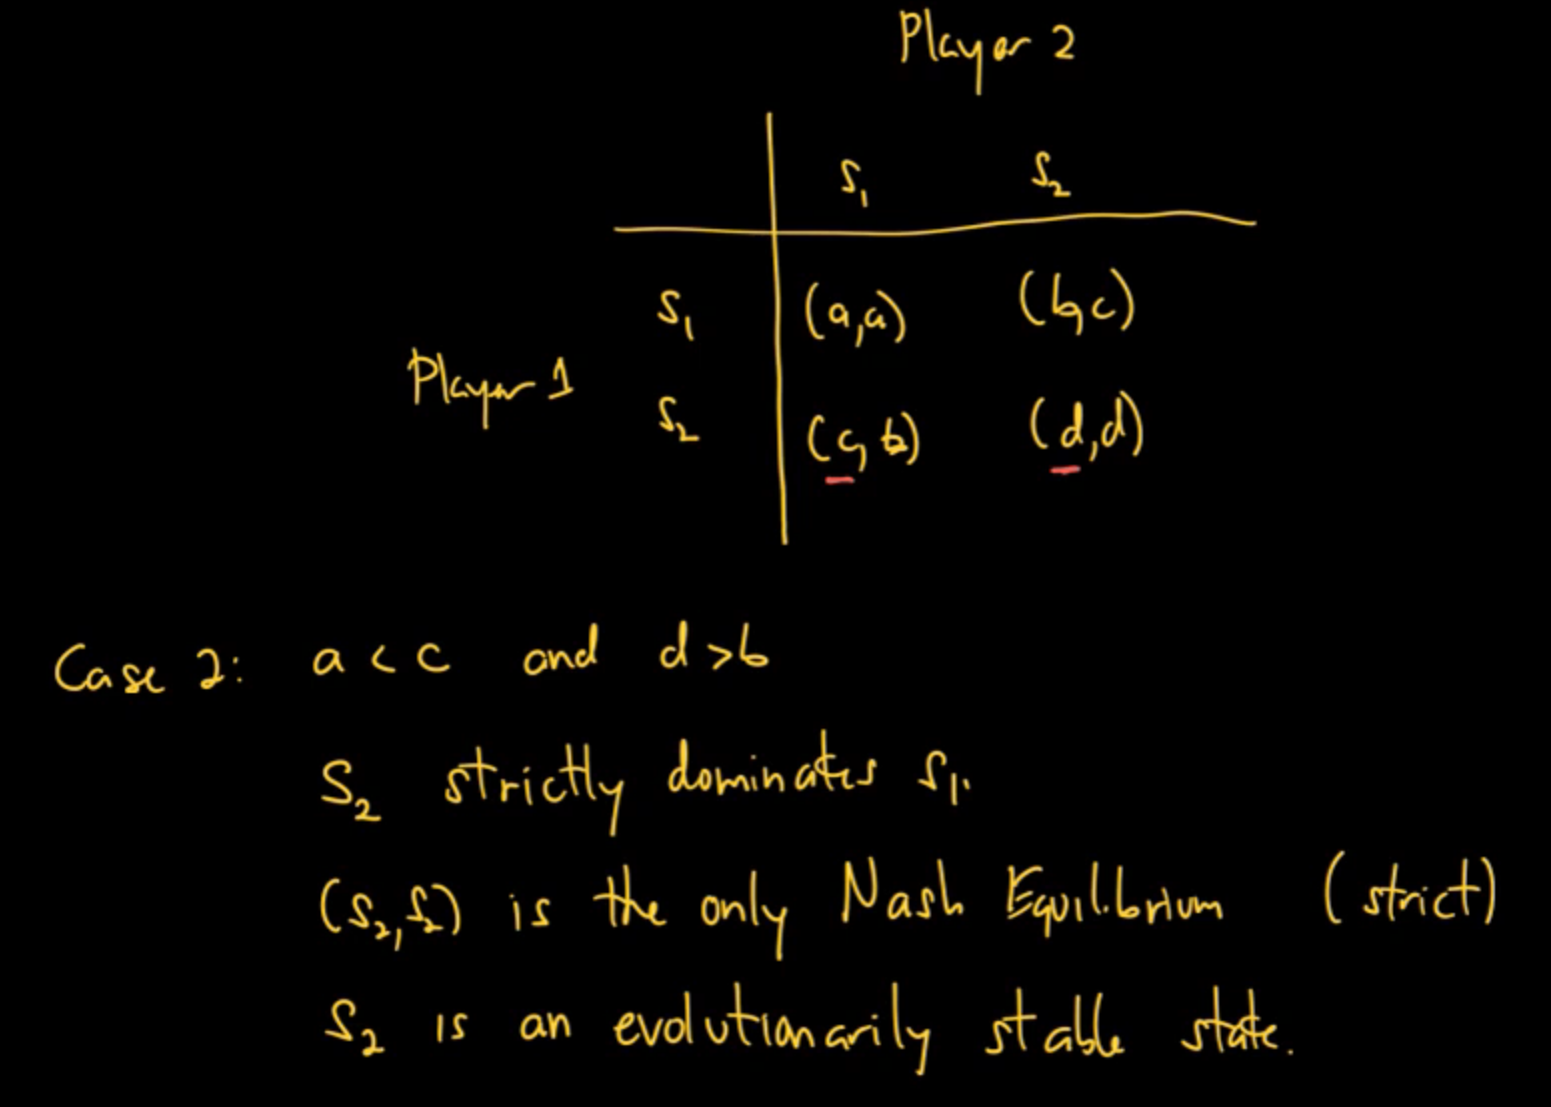 Player 2
S₁ S₂
S₁ (a,a) (b,c)
Player 1
S₂ (c,b) (d,d)
Case 2: a < c and d > b
S₂ strictly dominates S₁.
(S₂,S₂) is the only Nash Equilibrium (strict)
S₂ is an evolutionarily stable state.